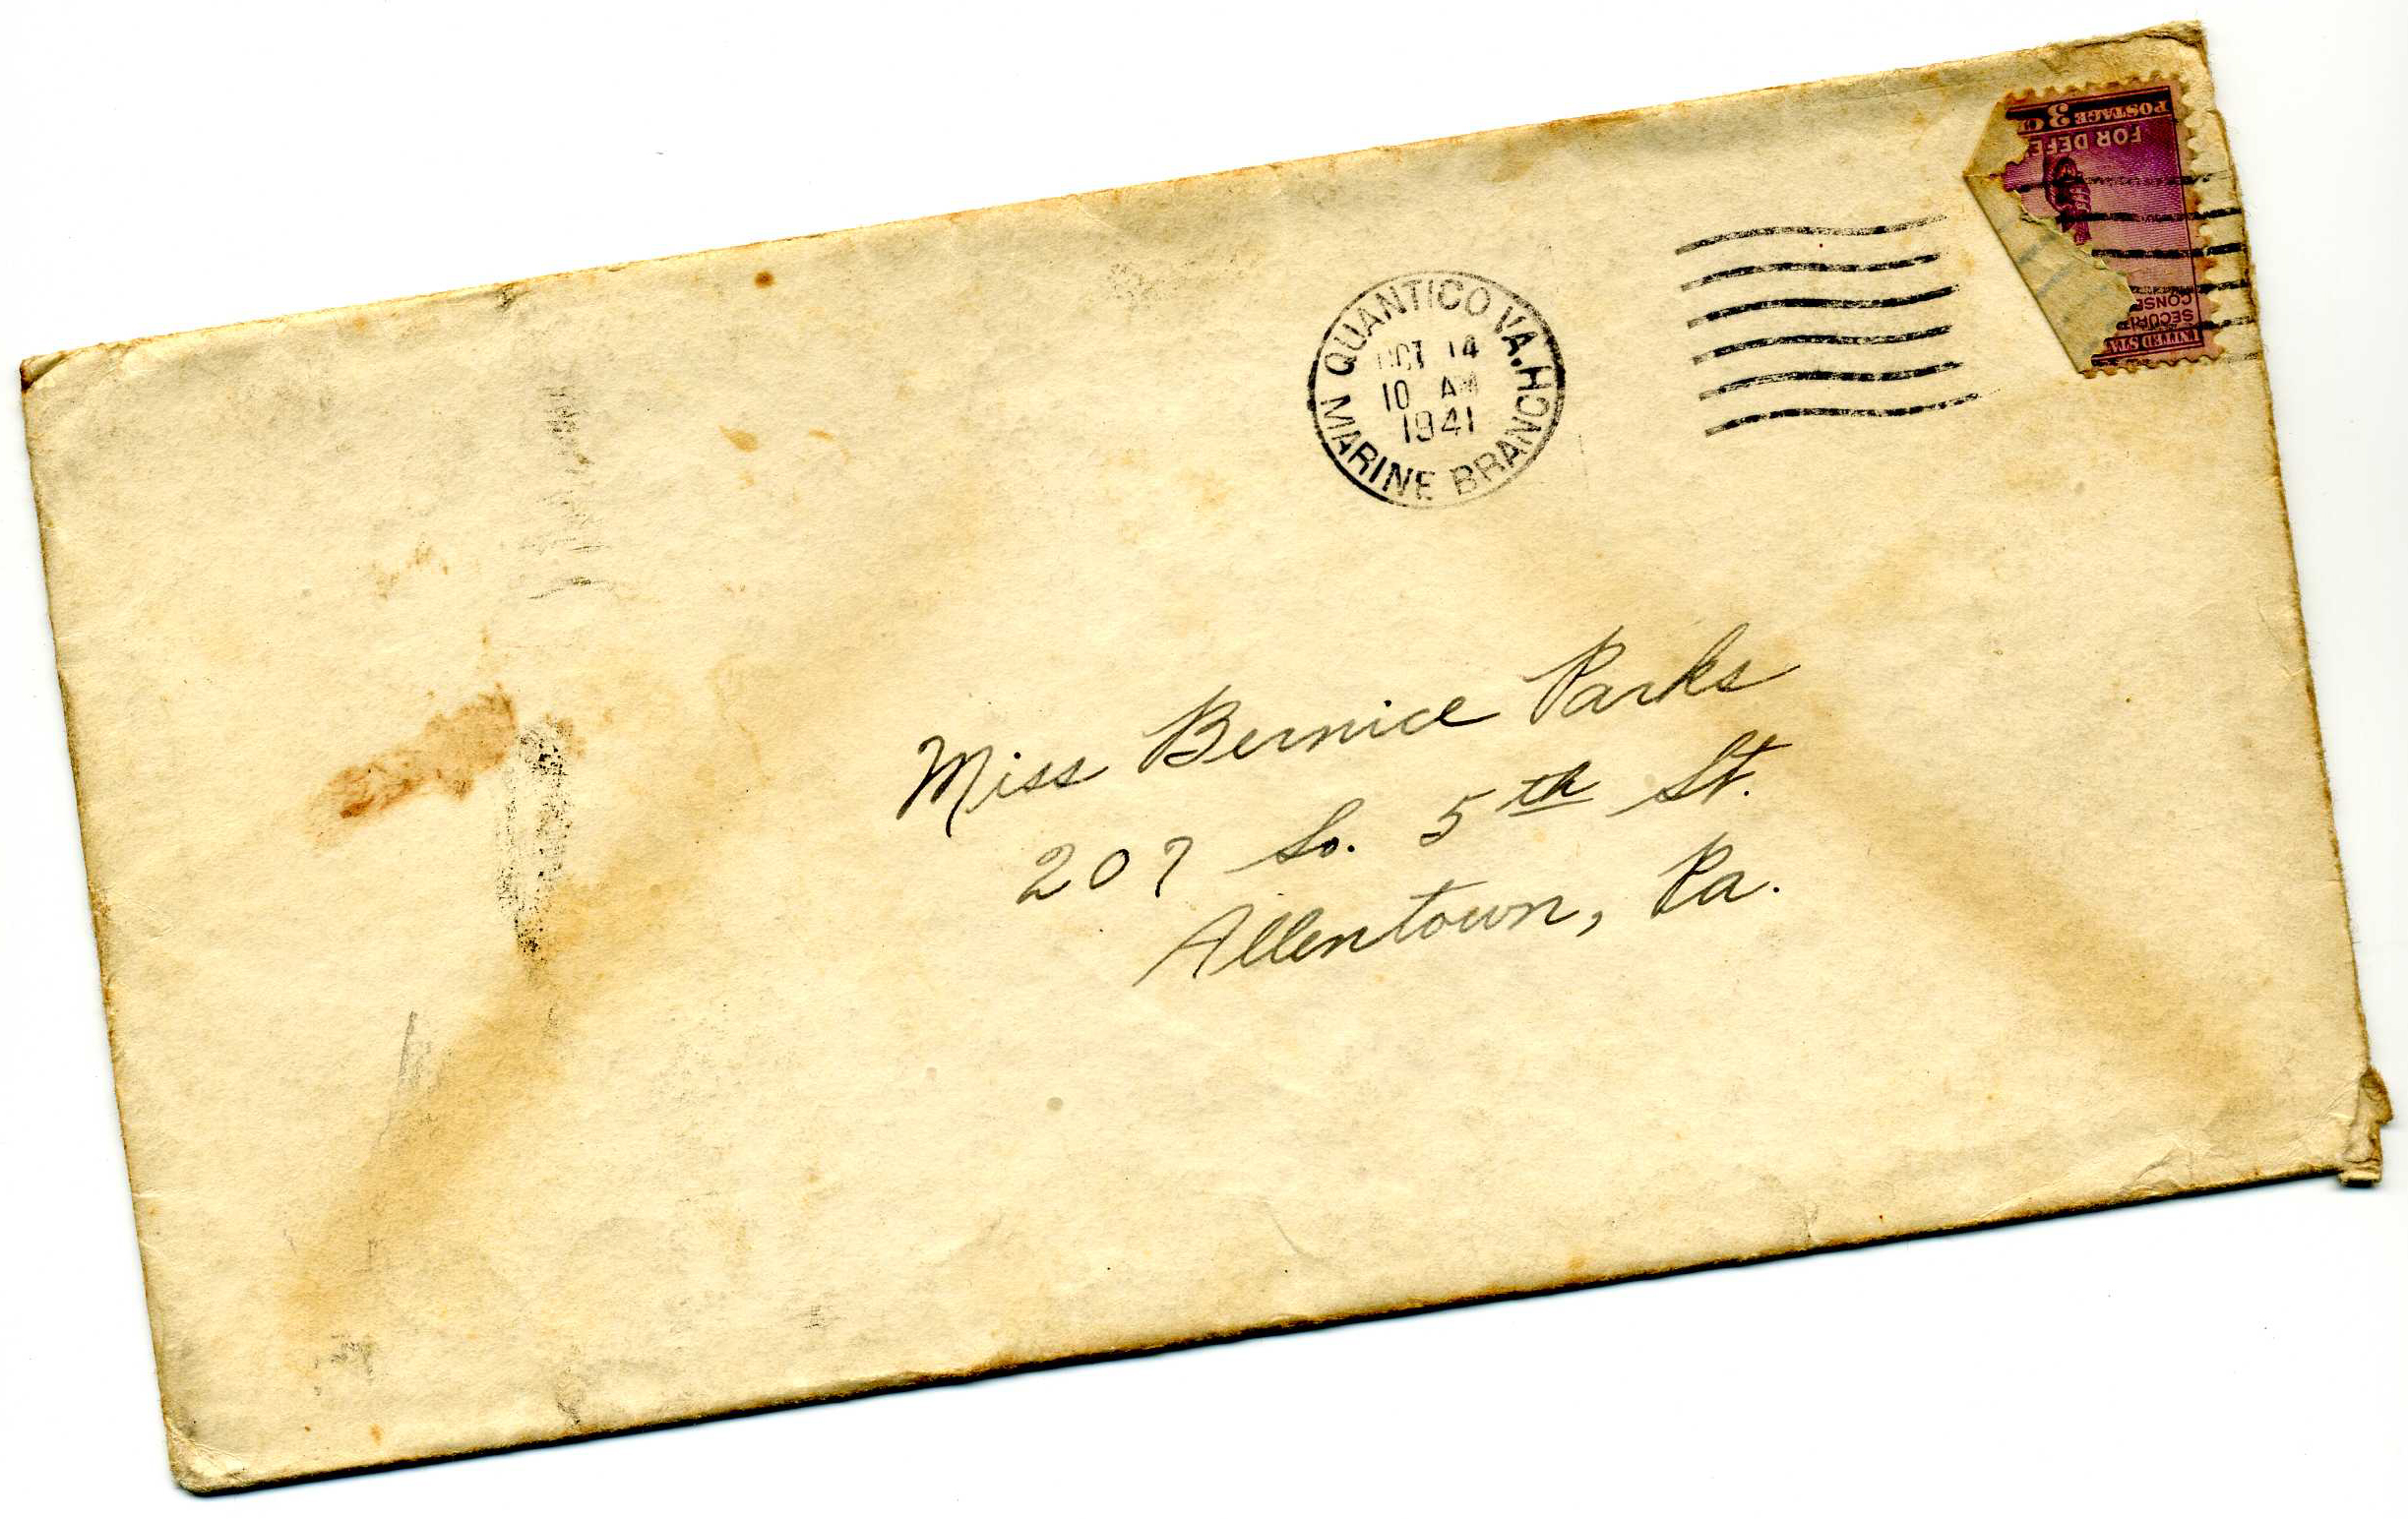 QUANTICO VA.
OCT 14
10 AM
1941
MARINE BRANCH
POSTAGE 3
FOR DEFE
CONSE
SECURI
UNITED STA
Miss Bernice Parks
207 So. 5th St.
Allentown, Pa.